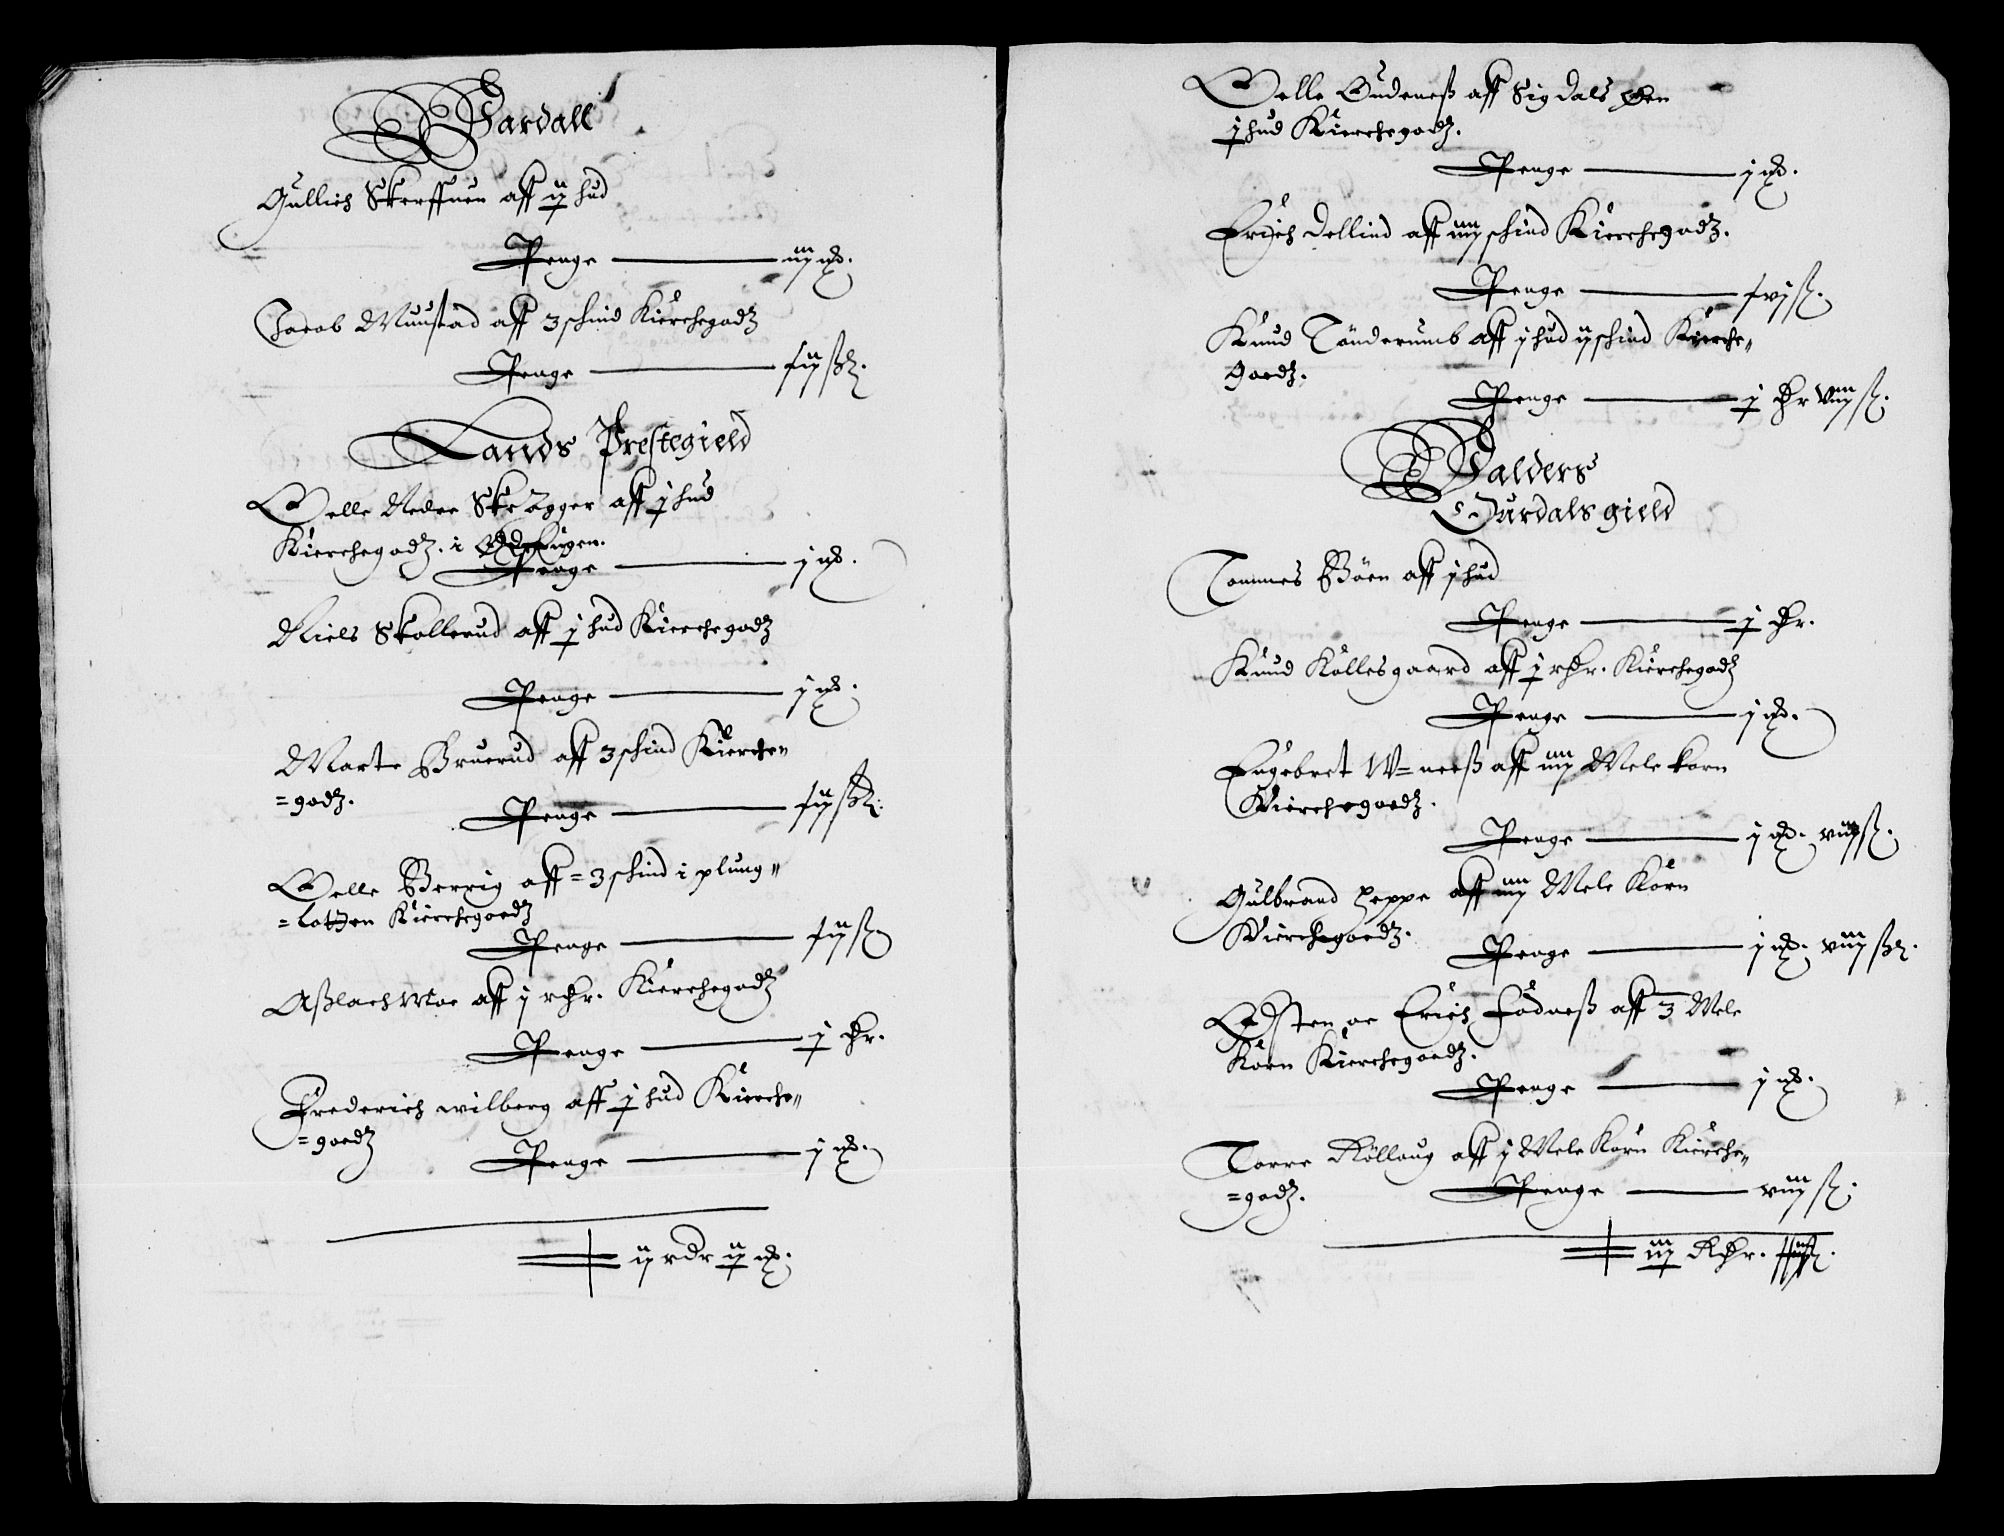 Vardall
Gullich Skerffuen aff ij hud
Penge — iij mk.
Jacob Muustad aff 3 schind Kierchegodz
Penge — xij sk.
Lands Prestegield
Oelle Nedre Skrøgger aff j hud
Kierchegodz. i
Penge — j mk.
Niels Skollerud aff j hud Kierchegodz
Penge — j mk.
Marte Bruerud aff 3 schind Kierche
=godz.
Penge — xij sk.
Oelle Berrig aff = 3 schind i plung"
=lotten Kierchegoedz
Penge — xij sk
Aßlach Moe aff j rdr. Kierchegodz
Penge — j ℔r.
Frederich wilberg aff j hud Kierche"
=goedz
Penge — j mk.
ij rdr ij mk.
Oelle Gudeneß aff Sigdals øen
j hud Kierchegodz.
Penge — j mk.
Erich Dellind aff iiij schind Kierchegodz.
Penge — xvj sk.
Knud Tønderumb aff j hud ij schind Kierche"
Goedz.
Penge — j ℔r viij sk.
Valders
Ourdals gield
Tommes Bøen aff j hud
Penge — j ℔r.
Knud Kollesgaard aff j rdr. Kierchegodz
Penge — j mk.
Engebret W=neeß aff iiij Mele korn
Kierchegoedz.
Penge — j mk. viij sk.
Gulbrand Heppe aff iiij Mele Korn
Kierchegoedz.
Penge — j mk. viij sk.
Østen oc Erich Fødneß aff 3 Mele
Korn Kierchegoedz.
Penge — j mk.
Torre Røllaug aff j Mele Korn Kierche"
=godz.
Penge — viij sk.
iij Rdr.